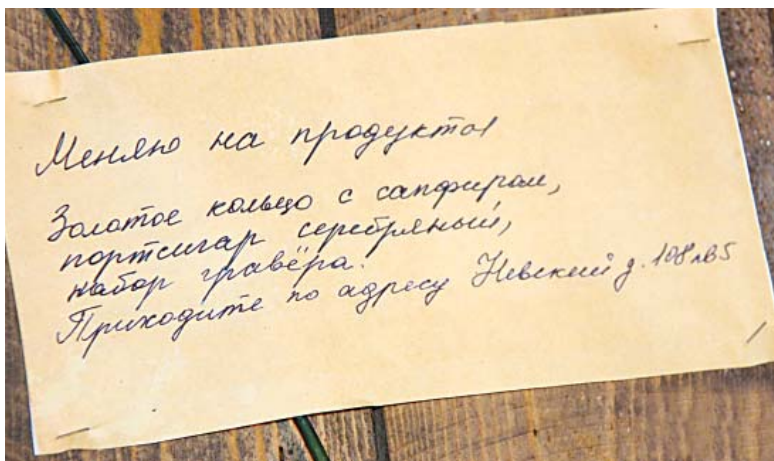 Меняю на продукты
Золотое кольцо с сапфиром,
портсигар серебряный,
набор гравёра.
Приходите по адресу Невский д. 108 кв 5